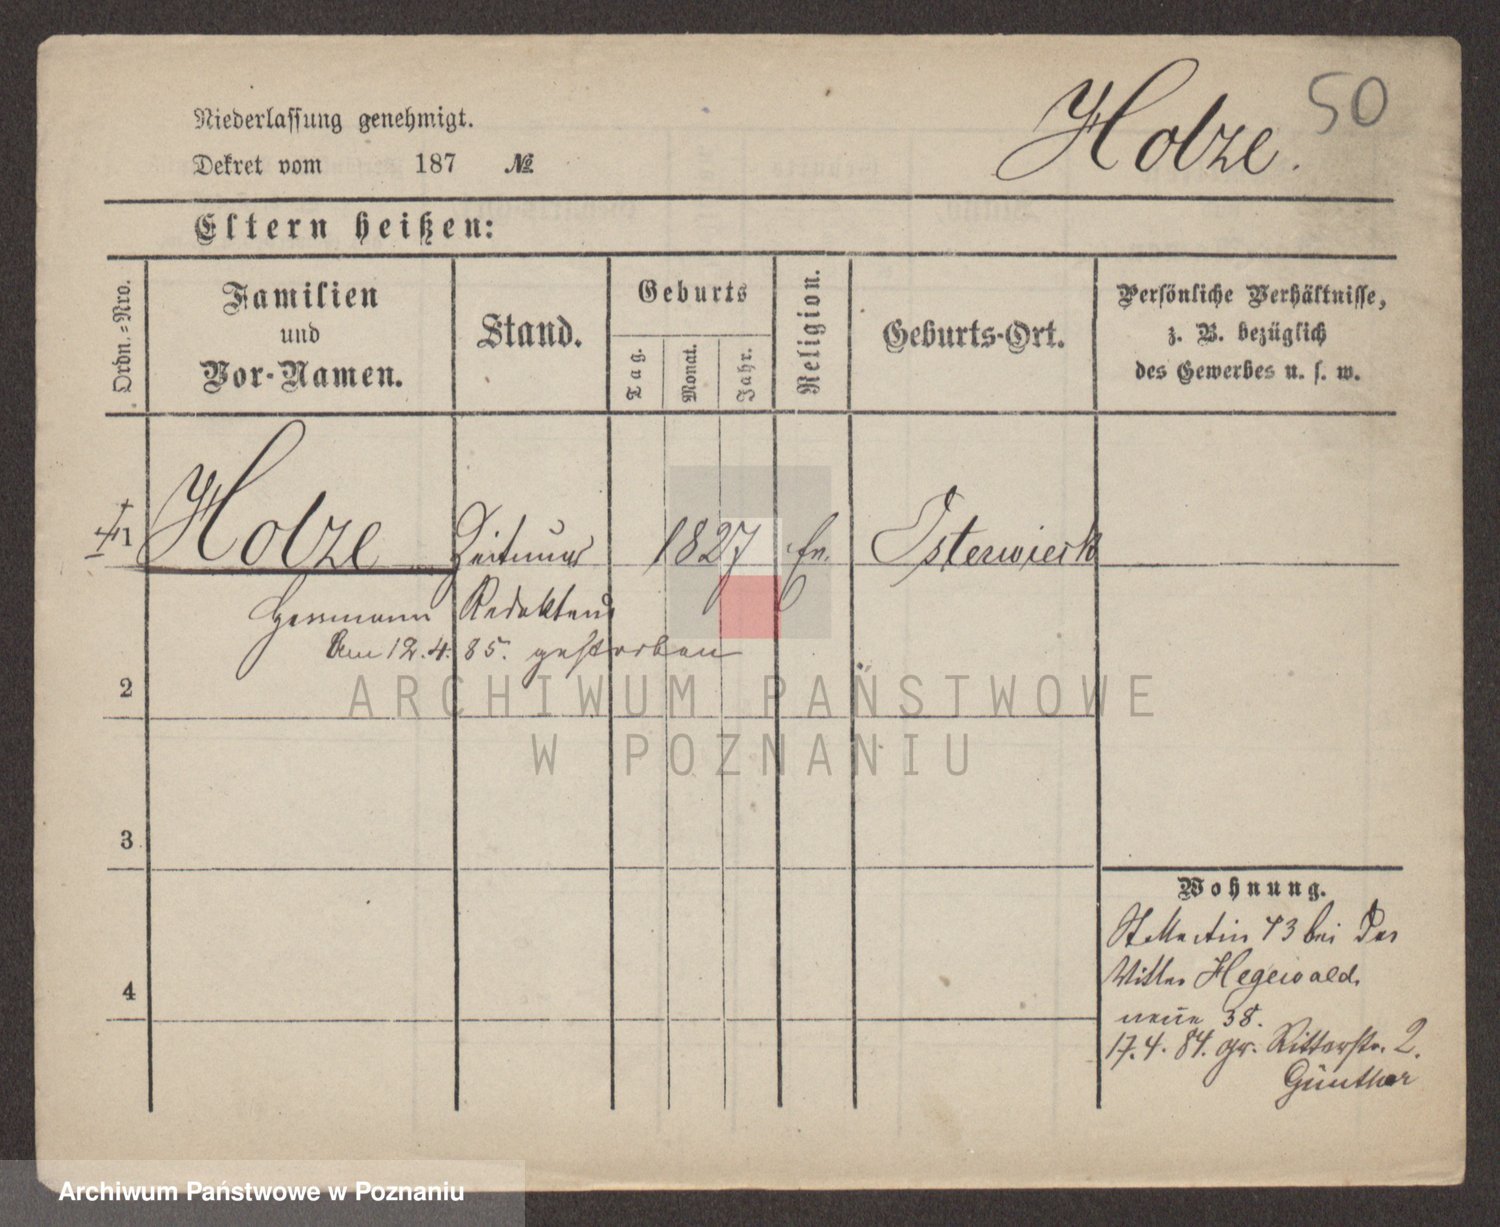 50
Niederlassung genehmigt.
Holze.
Dekret vom 187 №
Eltern heißen:
Ordn.-Nro.
Familien
und
Vor-Namen.
Stand.
Geburts
Tag.
Monat.
Jahr.
Religion.
Geburts-Ort.
Persönliche Verhältnisse,
z. B. bezüglich
des Gewerbes u. s. w.
1 Holze Zeitungs 1827 ev. Osterwieck
Herrmann Redakteur
Am 12.4.85. gestorben
2
3
4
Wohnung.
St Martin 73 bei Par
Hegewald.
neue 58.
17.4.84. gr. Ritterstr. 2.
Günther
ARCHIWUM PAŃSTWOWE
W POZNANIU
Archiwum Państwowe w Poznaniu